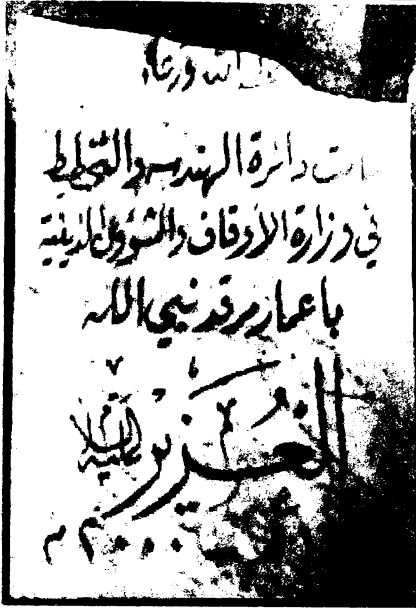 الله ورعاه
دائرة الهندسه والتخطيط
في وزارة الأوقاف والشؤون الدينية
باعمار مرقد نبي الله
العُزير عليه السلام
٢٠٠٠ م